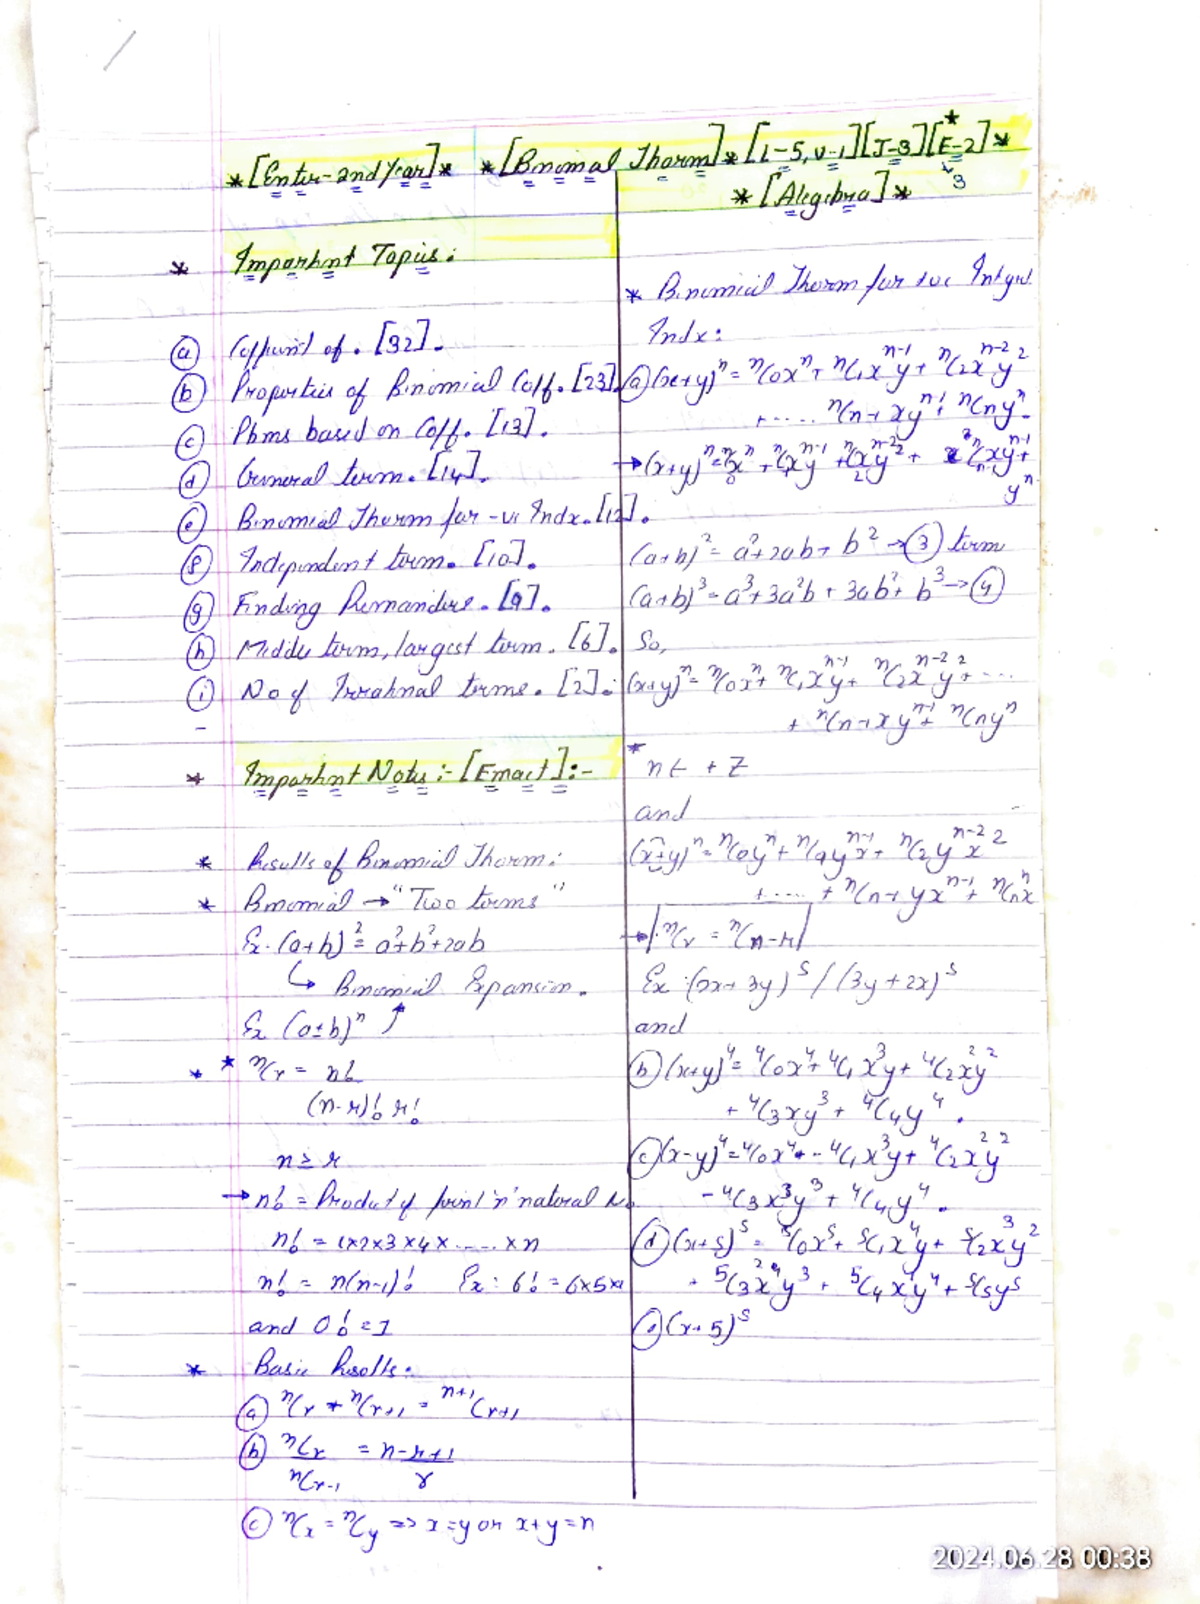 *[Enter-2nd Year]* *[Binomal Thorm]*[L-5,V-1][J-3][E-2]*
3
*[Alegebra]*
* Imporhnt Topics:
(a) Cofficint of. [32].
(b) Properties of Binomial Coff. [23].
(c) Pbms based on Coff. [13].
(d) General term. [14].
(e) Binomial Thorm for -ve Indx. [12].
(f) Independent term. [10].
(g) Finding Remandire. [9].
(h) Middle term, largest term. [6].
(i) No of Irrahnal terms. [2].
* Imporhnt Notes :- [Emact] :-
* Results of Binomial Thorm:
* Binomial → "Two terms"
Ex. (a+b)² = a²+b²+2ab
↳ Binomial Expansion.
Ex (a±b)ⁿ
* * ⁿCr = n!
(n-r)! r!
n ≥ r
→ n! = Product of first 'n' natural No.
n! = 1×2×3×4×.....×n
n! = n(n-1)! Ex: 6! = 6×5×4
and 0! = 1
* Basic Results:
(a) ⁿCr + ⁿCr+1 = ⁿ⁺¹Cr+1
(b) ⁿCr = n-r+1
ⁿCr-1 r
(c) ⁿCx = ⁿCy => x=y or x+y=n
* Binomial Thorm for +ve Intgrl
Indx:
(a) (x+y)ⁿ = ⁿC0xⁿ + ⁿC1xⁿ⁻¹y + ⁿC2xⁿ⁻²y²
+ ..... ⁿCn-1 xyⁿ⁻¹ + ⁿCnyⁿ.
→ (x+y)ⁿ = ⁿC0xⁿ + ⁿC1xⁿ⁻¹y + ⁿC2xⁿ⁻²y² + ⁿCn-1xyⁿ⁻¹ +
yⁿ
(a+b)² = a²+2ab+b² → (3) term
(a+b)³ = a³+3a²b+3ab²+b³ → (4)
So,
(x+y)ⁿ = ⁿC0xⁿ + ⁿC1xⁿ⁻¹y + ⁿC2xⁿ⁻²y² + ...
+ ⁿCn-1xyⁿ⁻¹ + ⁿCnyⁿ
* n ∈ +Z
and
(x+y)ⁿ = ⁿC0yⁿ + ⁿC1yⁿ⁻¹x + ⁿC2yⁿ⁻²x²
+ ..... + ⁿCn-1yxⁿ⁻¹ + ⁿCnxⁿ
→ ⁿCr = ⁿCn-r
Ex: (2x+3y)⁵ / (3y+2x)⁵
and
(b) (x+y)⁴ = ⁴C0x⁴ + ⁴C1x³y + ⁴C2x²y²
+ ⁴C3xy³ + ⁴C4y⁴.
(c) (x-y)⁴ = ⁴C0x⁴ + - ⁴C1x³y + ⁴C2x²y²
- ⁴C3x³y³ + ⁴C4y⁴.
(d) (x+5)⁵ = ⁵C0x⁵ + ⁵C1x⁴y + ⁵C2x³y²
+ ⁵C3x²y³ + ⁵C4x¹y⁴ + ⁵C5y⁵
(x+5)⁵
2024.06.28 00:38